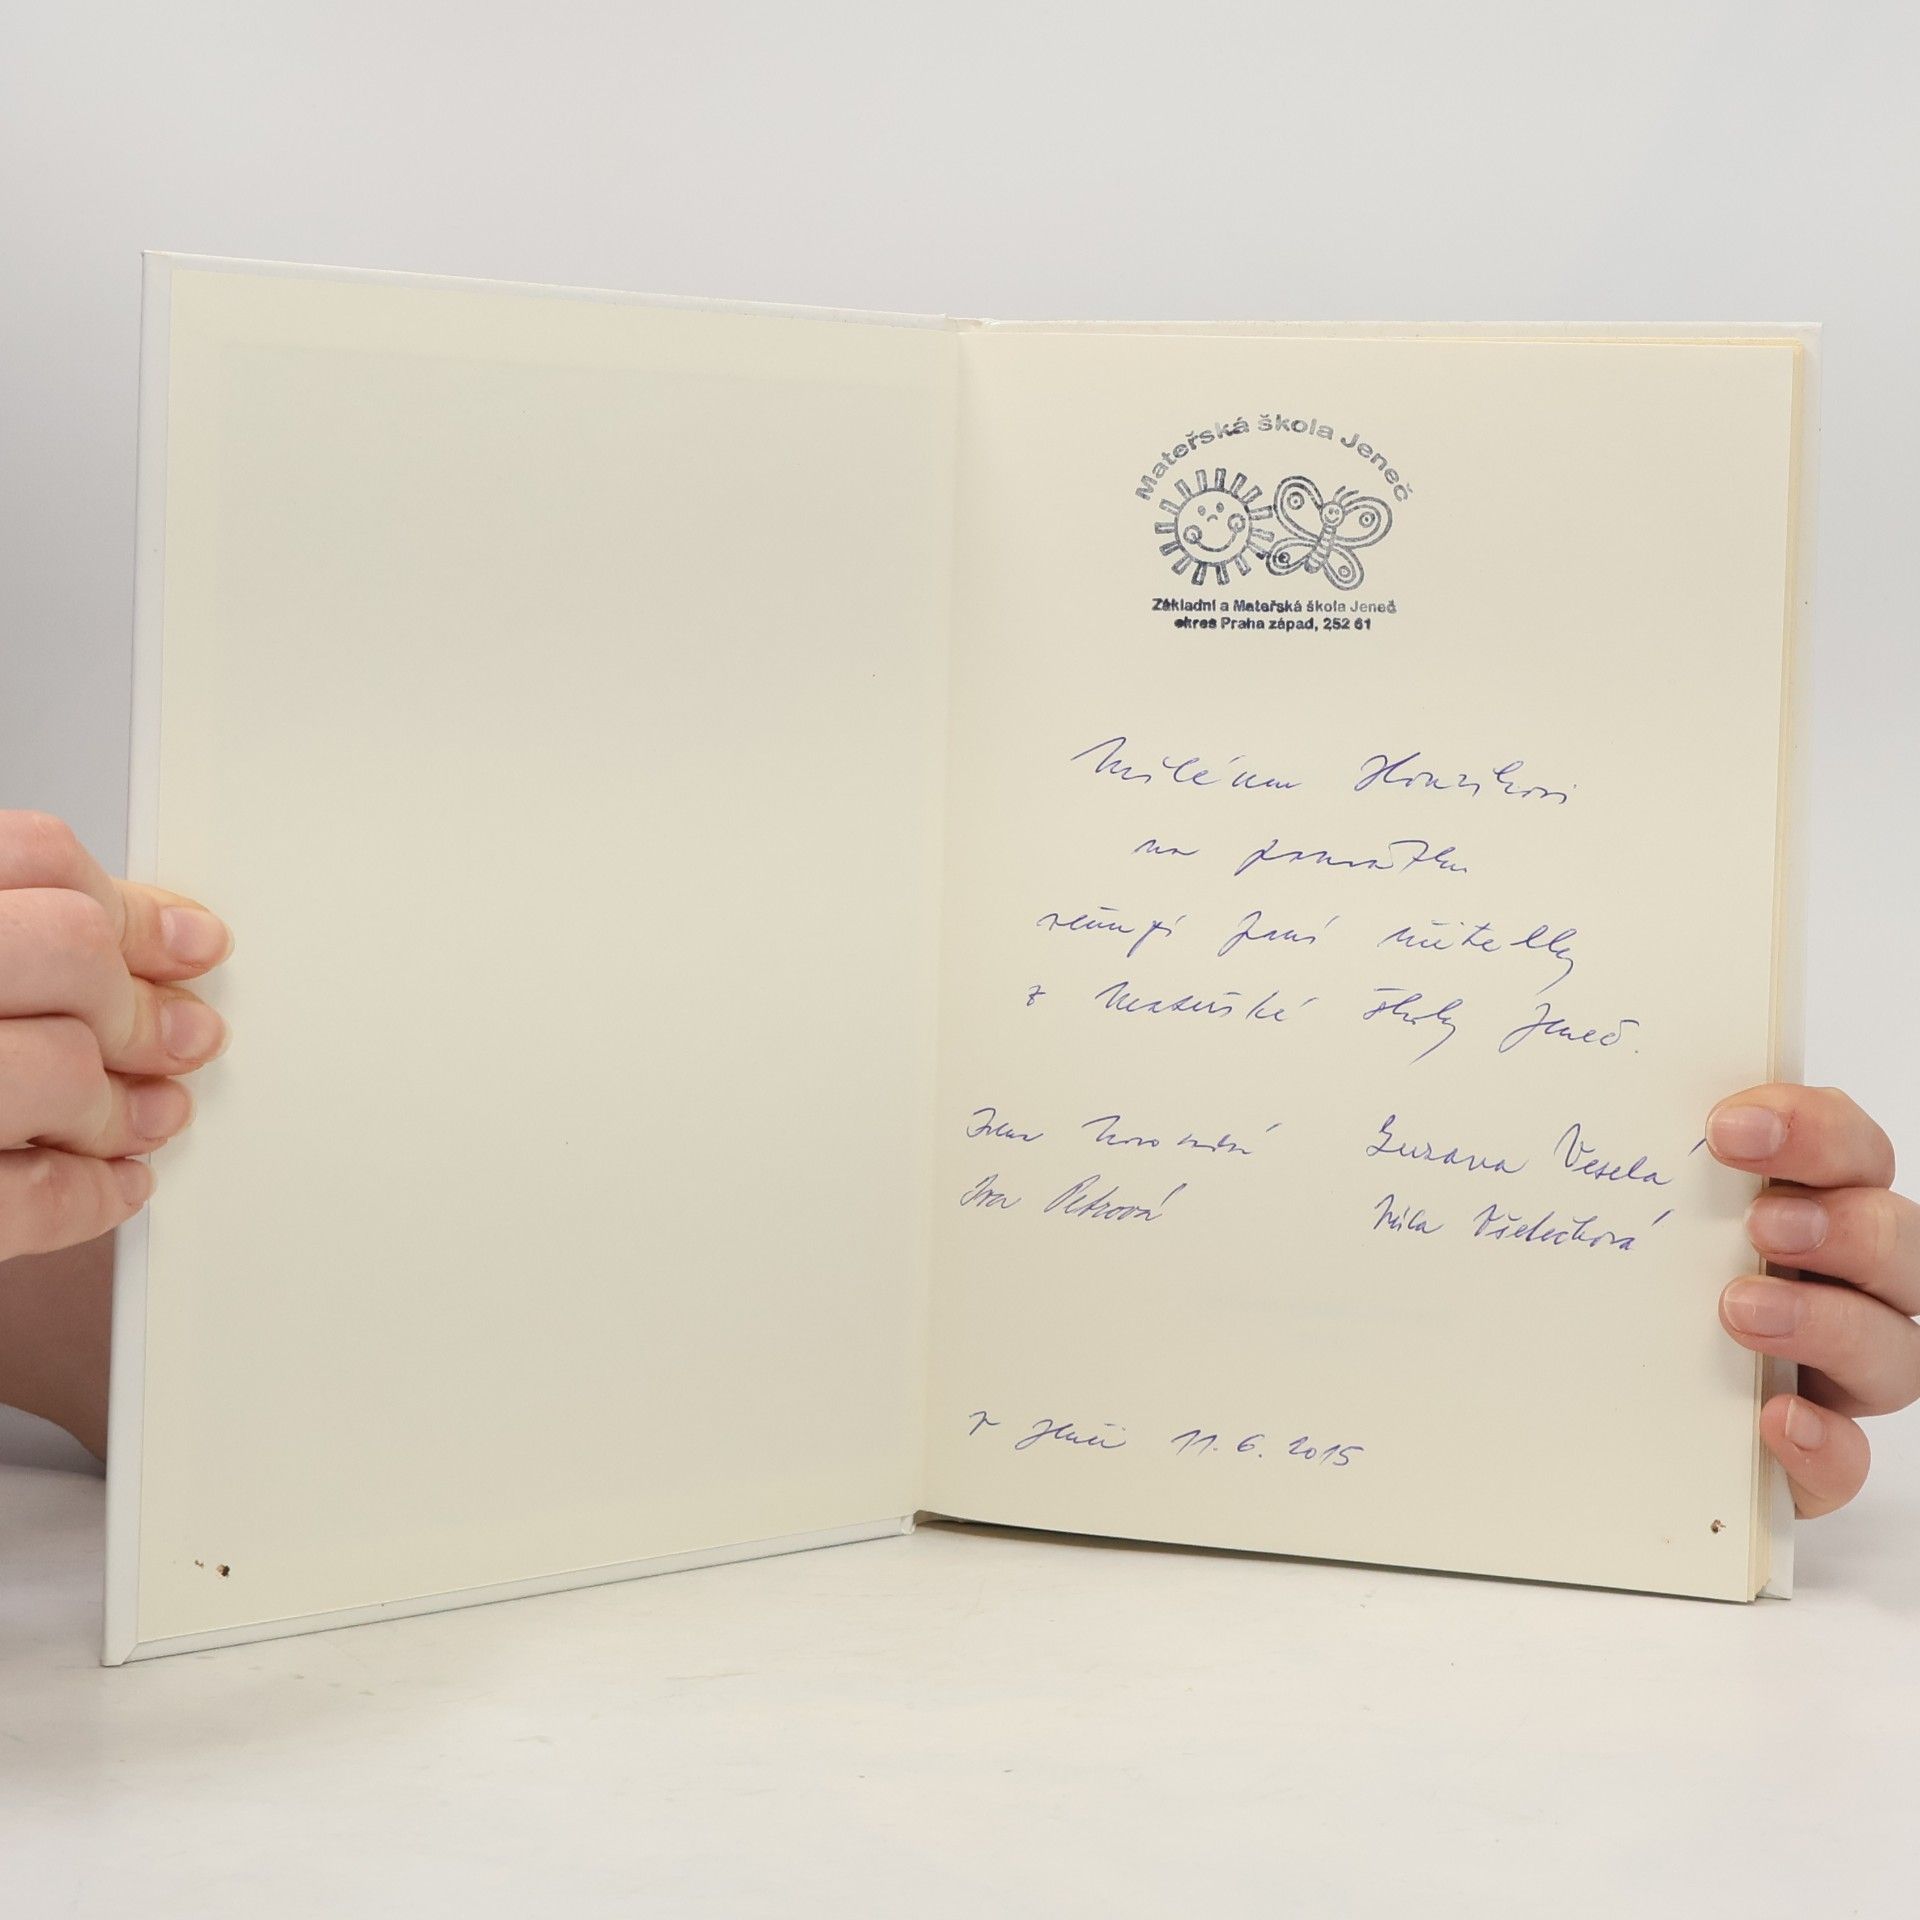 Mateřská škola Jeneč
Základní a Mateřská škola Jeneč
okres Praha západ, 252 61
Milému Honzíkovi
na památku
věnují paní učitelky
z Mateřské školy Jeneč.
Zuzana Veselá
Iva Petrová Míla Všetečková
V Jenči 11. 6. 2015